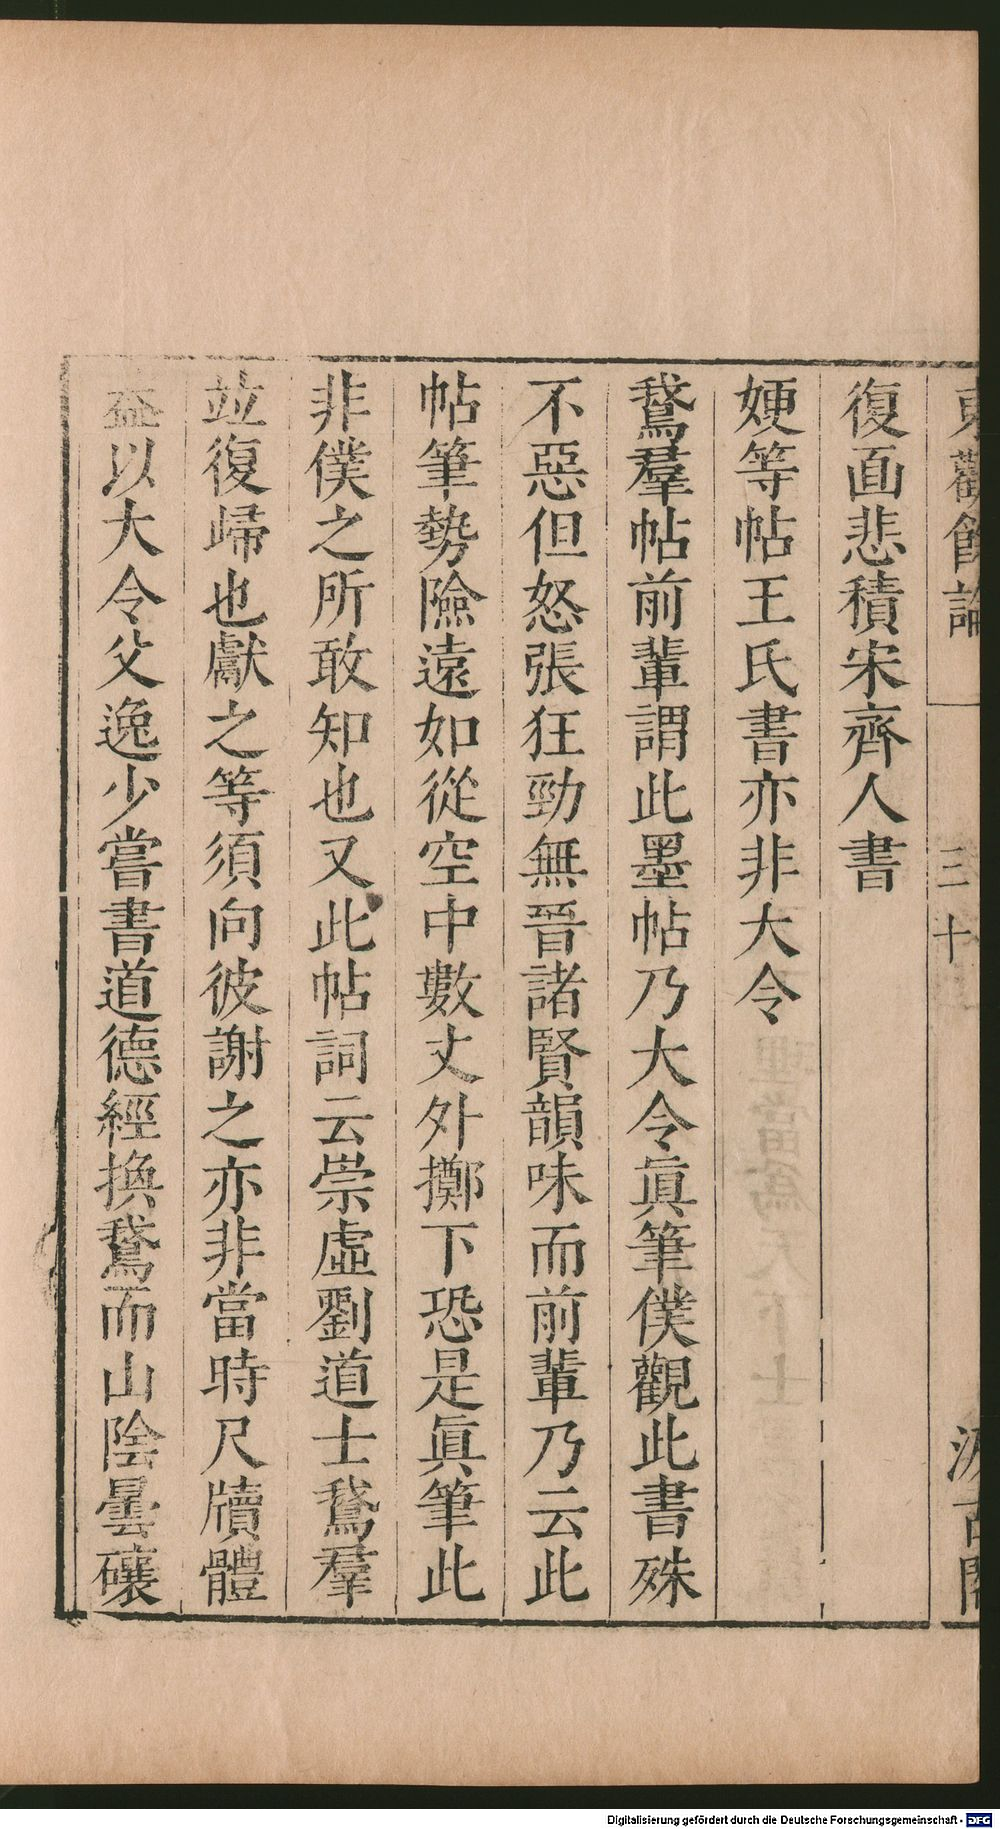 東觀餘論 三十 汲古閣
復面悲積宋齊人書
㛐等帖王氏書亦非大令
鵞羣帖前輩謂此墨帖乃大令眞筆僕觀此書殊
不惡但怒張狂勁無晉諸賢韻味而前輩乃云此
帖筆勢險遠如從空中數丈外擲下恐是眞筆此
非僕之所敢知也又此帖詞云崇虛劉道士鵞羣
竝復歸也獻之等須向彼謝之亦非當時尺牘體
葢以大令父逸少嘗書道德經換鵞而山陰曇礲
Digitalisierung gefördert durch die Deutsche Forschungsgemeinschaft - DFG